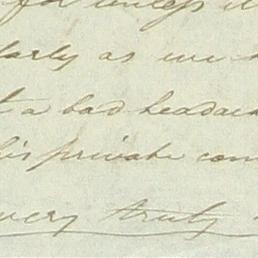 for unless it
larly as we
t a bad headac
his private com
very truly